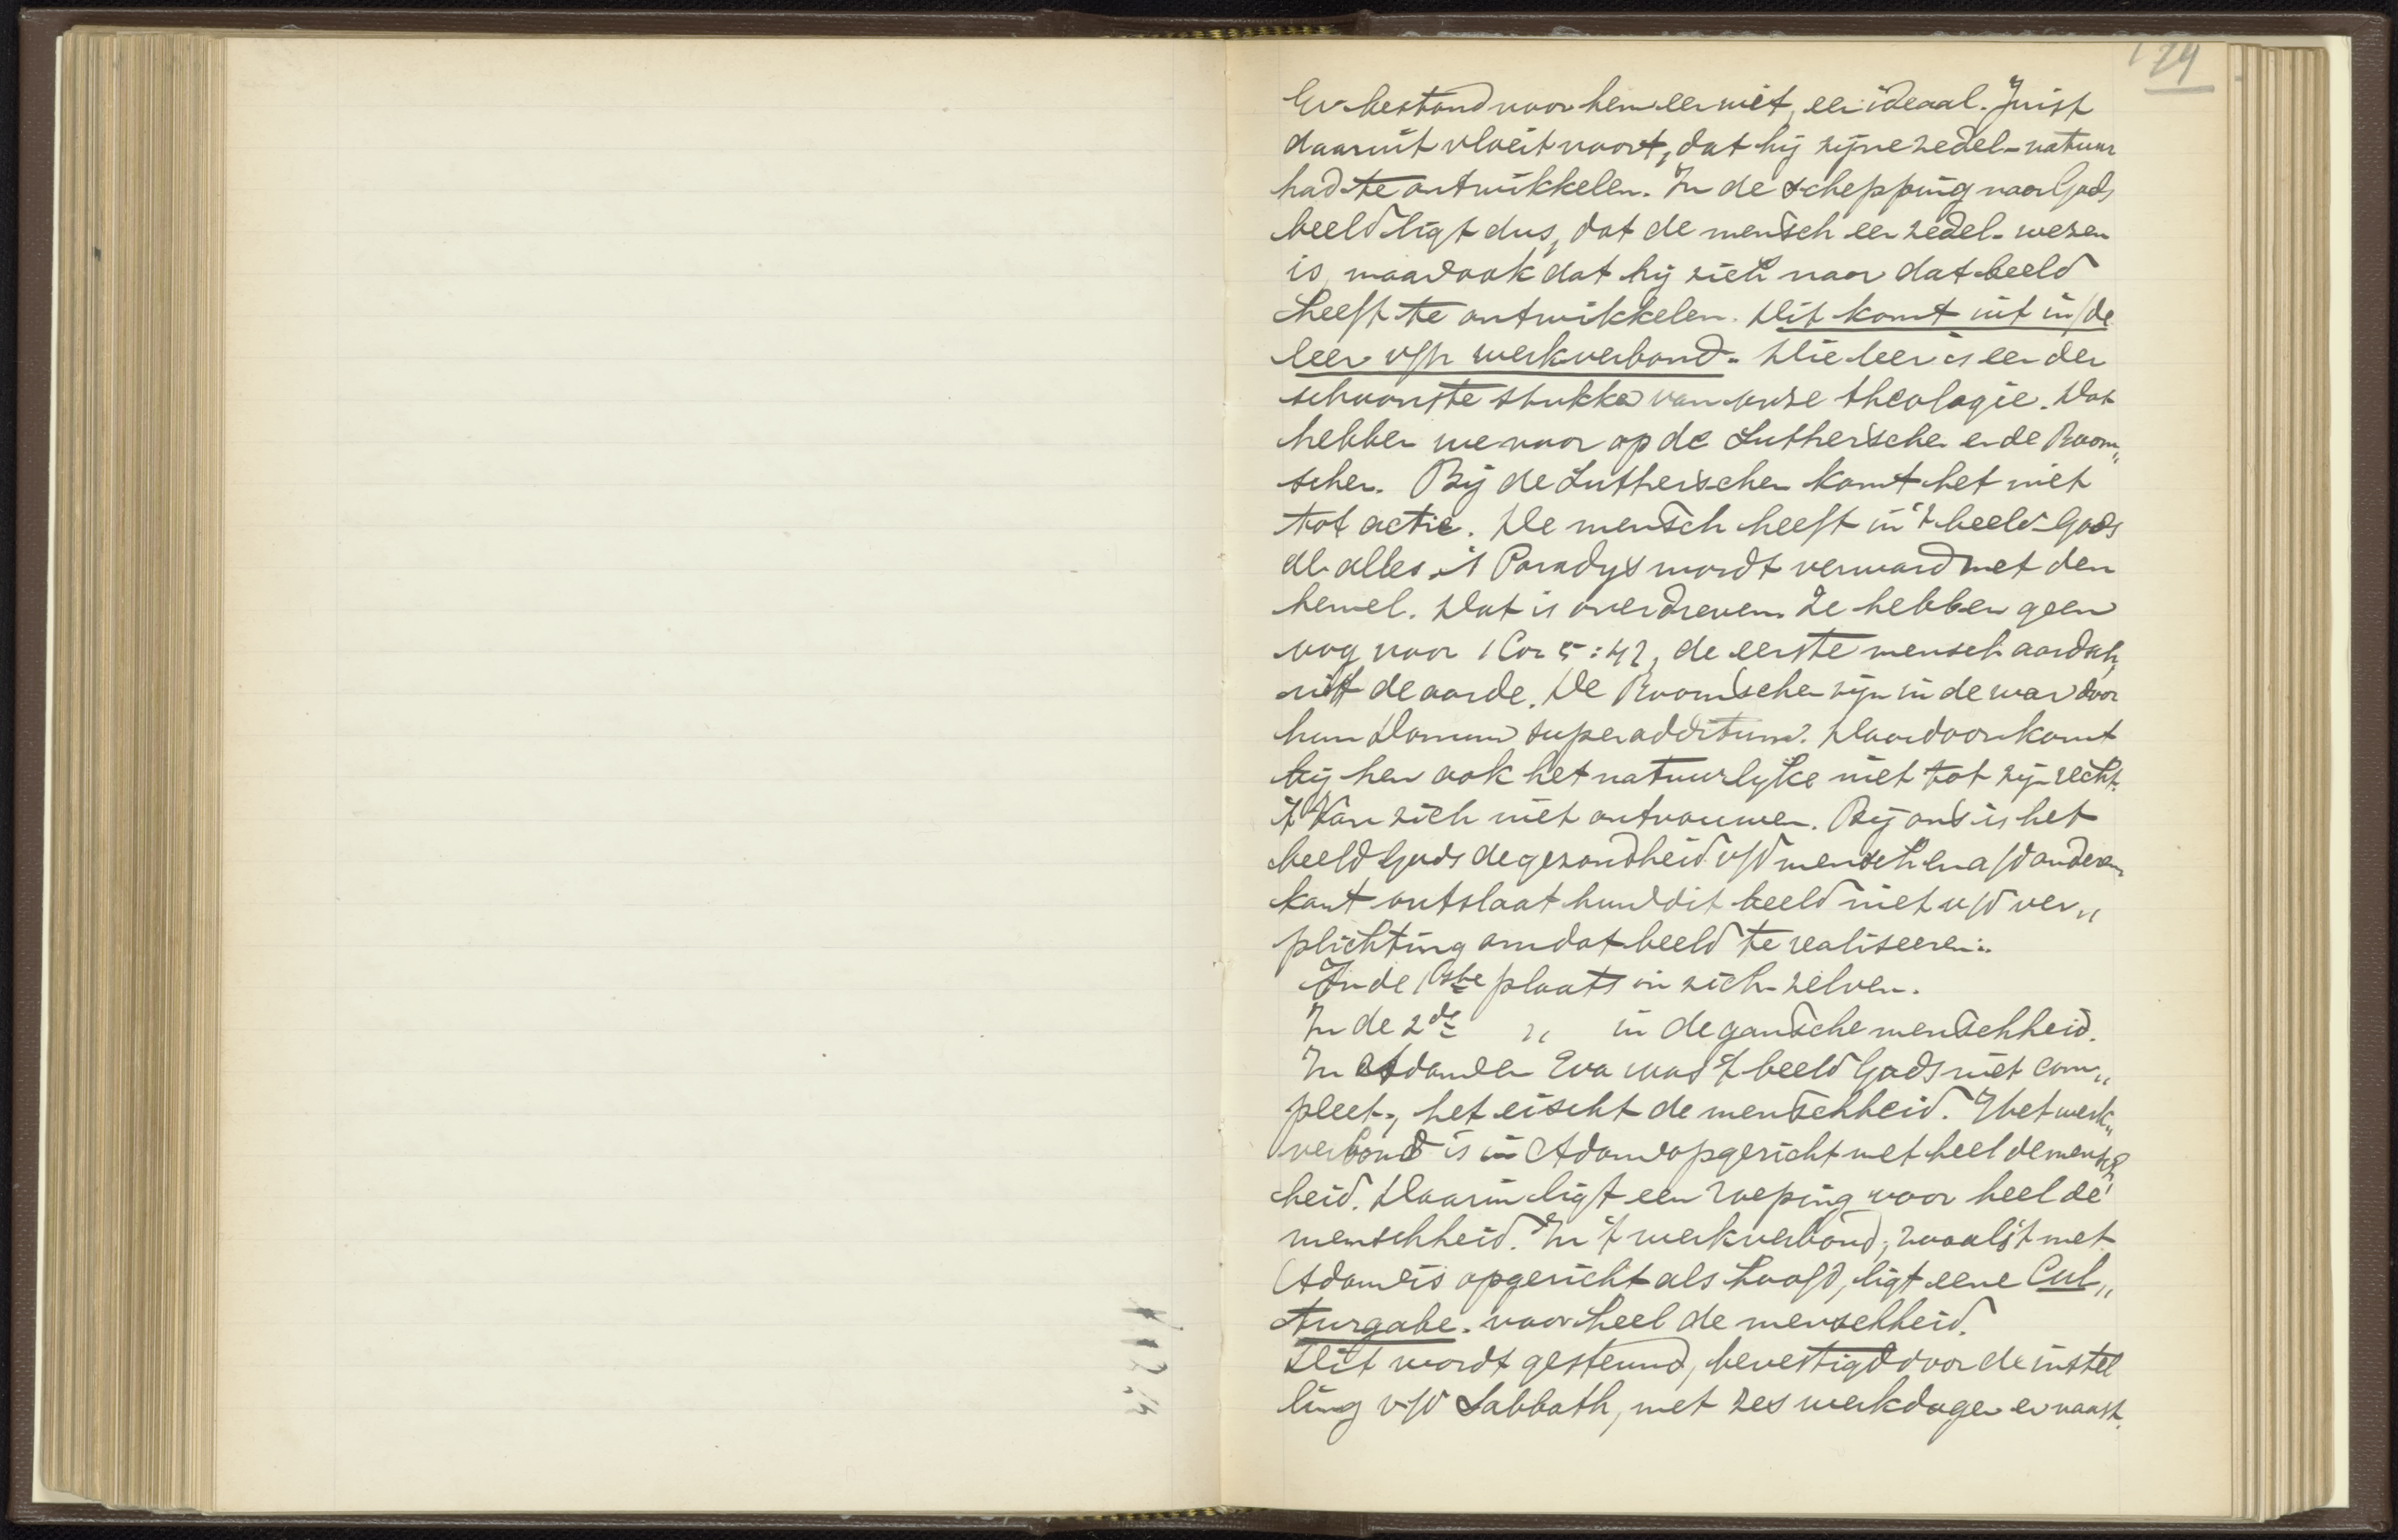 174
Er bestond voor hem een wet, een ideaal. Juist
daaruit vloeit voort, dat hij zijne zedel-natuur
had te ontwikkelen. In de schepping naar Gods
beeld ligt dus, dat de mensch een zedel-wezen
is, maar ook dat hij zich naar dat beeld
heeft te ontwikkelen. Dit komt uit in/de
leer v/h werkverbond. Die leer is een der
schoonste stukken van onze theologie. Dat
hebben we voor op de Luthersche en de Room„
schen. Bij de Lutherschen komt het niet
tot actie. De mensch heeft in 't beeld Gods
al alles. 't Paradijs wordt verward met den
hemel. Dat is overdreven. Ze hebben geen
oog voor 1 Cor 5:42, de eerste mensch aardsch,
uit de aarde. De Roomschen zijn in de war door
hun donum superadditum. Daardoor komt
bij hen ook het natuurlijke niet tot zijn recht.
't Kan zich niet ontvouwen. Bij ons is het
beeld Gods de gezondheid v/d mensch en a/d anderen
kant ontslaat hun dit beeld niet v/d ver„
plichting om dat beeld te realiseeren:
In de 1ste plaats in zich-zelven.
In de 2de „ in de gansche menschheid.
In Adam en Eva was 't beeld Gods niet com„
pleet, het eischt de menschheid. Het werk„
verbond is in Adam opgericht met heel de mensch„
heid. Daarin ligt een roeping voor heel de
menschheid. In 't werkverbond, zooals 't met
Adam is opgericht als hoofd, ligt eene Cul„
turgabe voor heel de menschheid.
Dit wordt gesteund, bevestigd door de instel
ling v/d Sabbath, met zes werkdagen er naast.